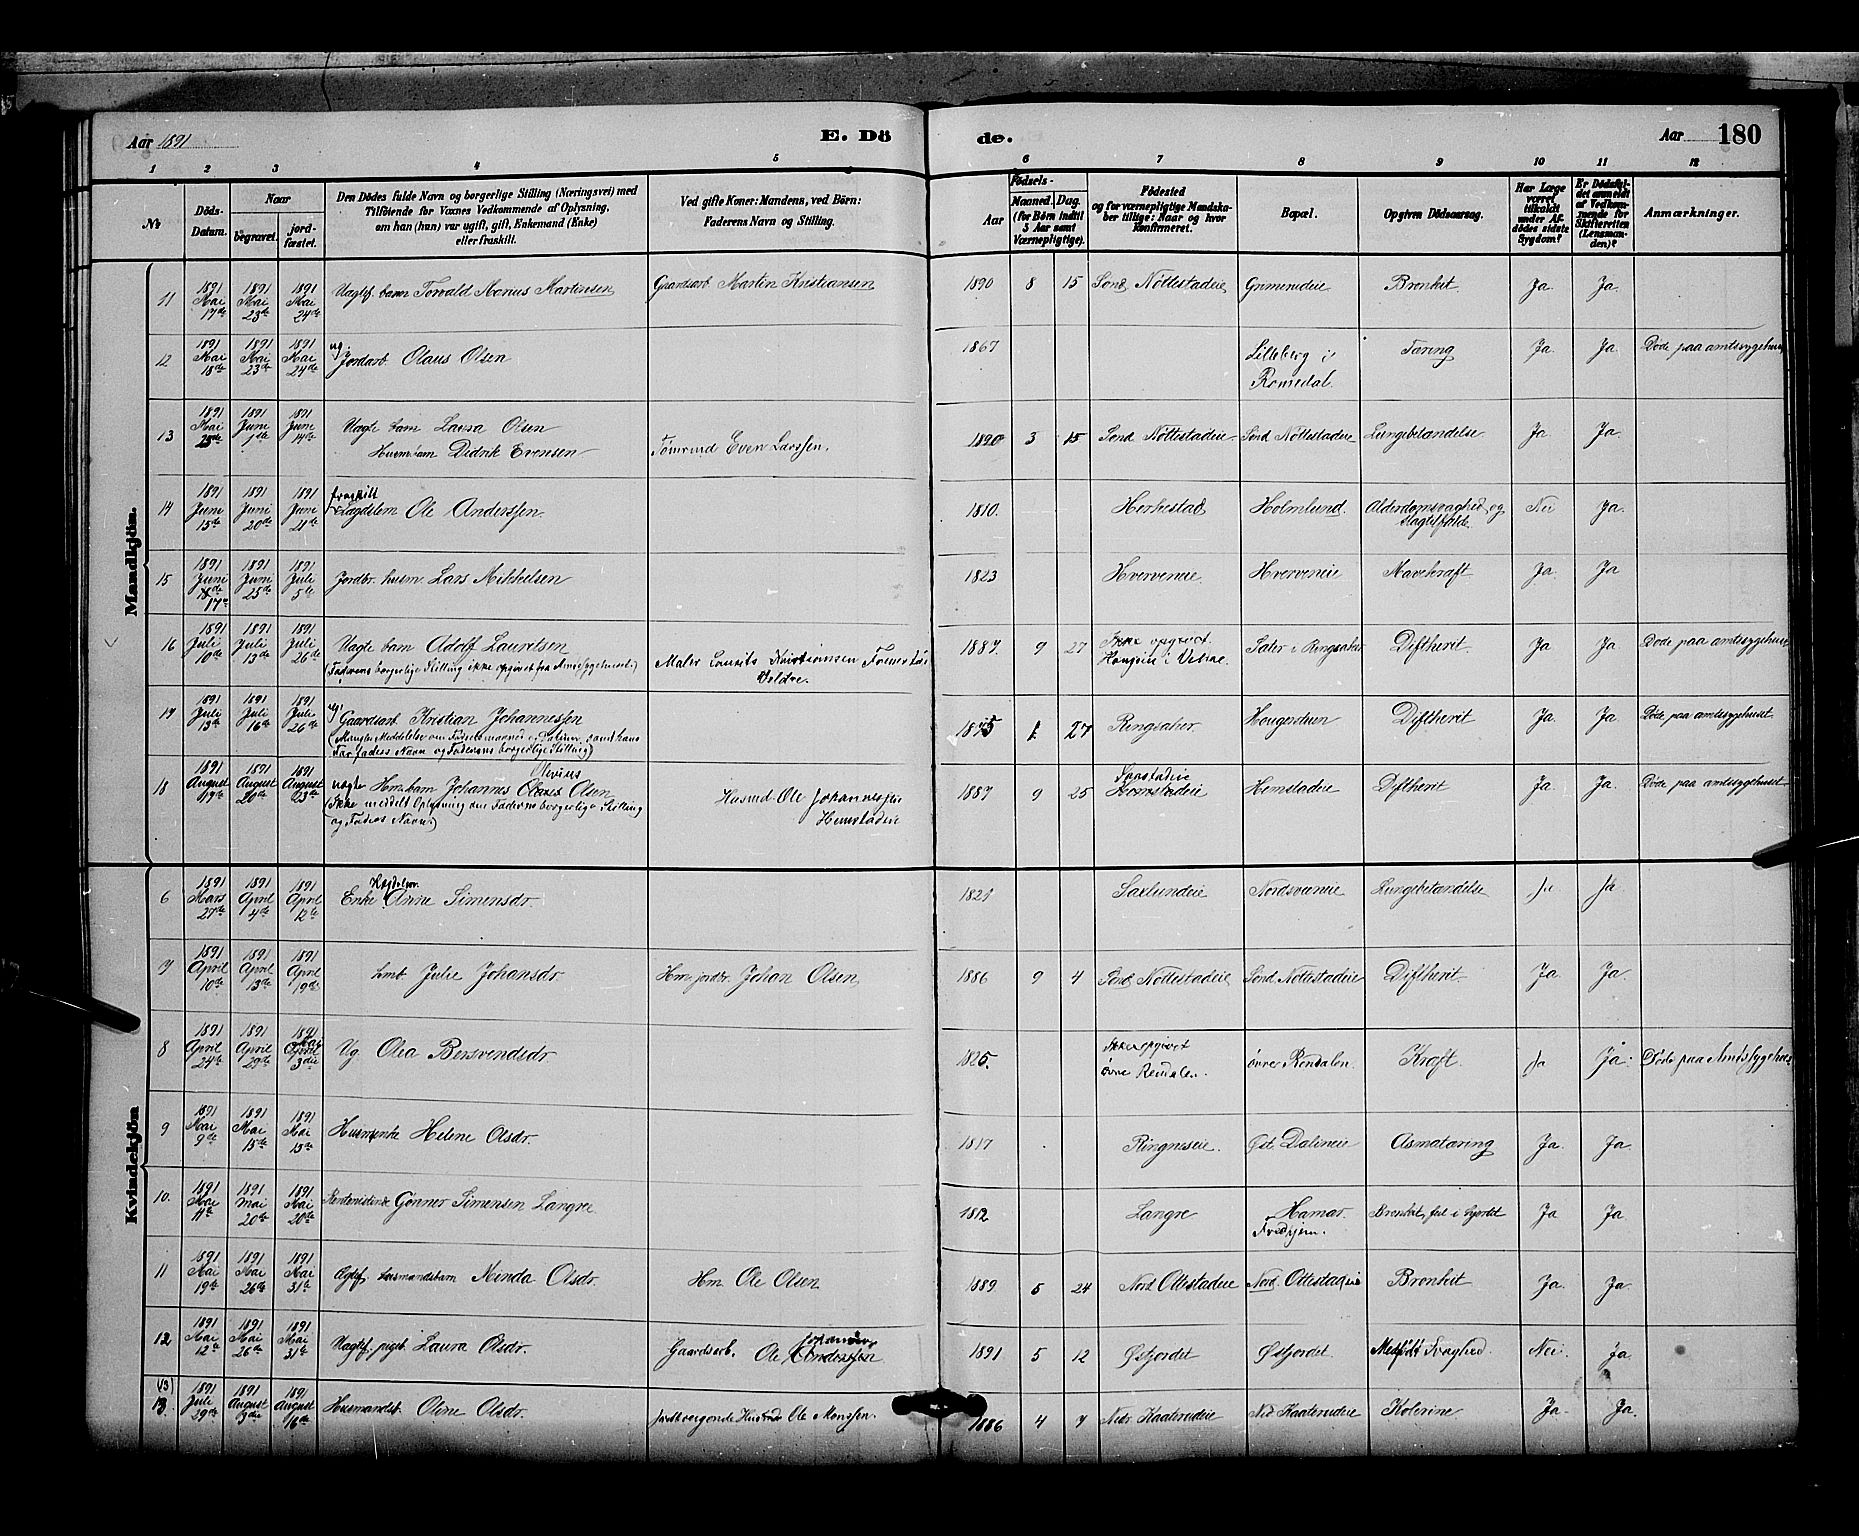 Aar 1891 E. Dö de. Aar 180
1 2 3 4 5 6 7 8 9 10 11 12
№ Döds-Datum. Naar begravet. jord-fæstet. Den Dödes fulde Navn og borgerlige Stilling (Næringsvei) med Tilföiende for Voxnes Vedkommende af Oplysning, om han (hun) var ugift, gift, Enkemand (Enke) eller fraskilt. Ved gifte Koner: Mandens, ved Börn: Faderens Navn og Stilling. Födsels- Aar Maaned. Dag. (for Börn indtil 3 Aar samt Værnepligtige). Födested og for værnepligtige Mandskaber tillige: Naar og hvor Konfirmeret. Bopæl. Opgiven Dödsaarsag. Har Læge været tilkaldt under Afdödes sidste Sygdom? Er Dödsfaldet anmeldt af Vedkommende for Skifteretten (Lensmanden)? Anmærkninger.
Mandkjön.
11 1891 Mai 17de 1891 Mai 23de 1891 Mai 24de Uægtef. barn Torvald Marius Martinsen Gaardsarb Martin Kristiansen 1890 8 15 Sond Nöttestadeie Grimerudeie Bronkit. Ja Ja.
12 1891 Mai 18de 1891 Mai 23de 1891 Mai 24de ug. Jordarb Olaus Olsen 1867 Lilleberg i Romedal. Tæring Ja. Ja. Døde paa amtssygehus
13 1891 Mai 1891 Juni 1ste 1891 Juni 14de Uægte barn Olsen Husm.barn Didrik Evensen Even Larssen. 1890 3 15 Sond Nöttestadeie Sond Nöttestadeie Lungebetændelse Ja. Ja.
14 1891 Juni 15de 1891 Juni 20de 1891 Juni 21de fraskilt Lægdslem Ole Anderssen. 1810. Horkestad Holmlund. Alderdomssvaghed og Slagtilfælde Nei Ja.
15 1891 Juni 17de 1891 Juni 25de 1891 Juli 5te Jordbr. husm. Lars Mikkelsen 1823 Hverveneie. Hverveneie Mavekræft Ja. Ja
16 1891 Juli 10de 1891 Juli 13de 1891 Juli 26de Uægte barn Adolf Lauritsen (Faderens borgerlige Stilling ikke opgivet fra Amtssygehuset.) Maler Laurits Kristiansen Veldre. 1887 9 27 Ikke opgivet. i Veldre. Sæter i Ringsaker Diftherit. Ja Ja Døde paa amtssygehus
17 1891 Juli 13de 1891 Juli 16de 1891 Juli 26de ug. Gaardsarb Kristian Johannessen (Mangler Meddelelse om Fødselsmaaned og Datum, samt hans Fadors Navn og Faderens borgerlige Stilling) 1875 1 27 Ringsaker. Diftherit Ja. Ja Døde paa amtssygehuset.
18 1891 August 17de 1891 August 20de 1891 August 23de uægte Hm.barn Johannes Olevius Olsen (Ikke meddelt Oplysning om Faderens borgerlige Stilling og Fadors Navn.) Husmd. Ole Johannessen Hemstadeie 1887 9 25 Faastadeie Hemstadeie Hemstadeie Diftherit Ja. Ja. Døde paa amtssygehuset
Kvindekjön
6 1891 Mars 27de 1891 April 4de 1891 April 12te Enke Anne Simensdr. 1821 Saxlundeie Nordsveneie Lungebetændelse Ja Ja
7 1891 April 10de 1891 April 13de 1891 April 19de Julie Johansdr. Hm. jordbr. Johan Olsen 1886 9 4 Sond Nöttestadeie Sond. Nöttestadeie Diftherit. Ja. Ja.
8 1891 April 24de 1891 April 29de 1891 Mai 3die Ug Olea Bersvendsdr 1825. Ikke opgivet övre Rendalen. övre Rendalen. Kræft. Ja Ja. Døde paa Amtssygehus.
9 1891 Mai 9de 1891 Mai 15de 1891 Mai 15de Husmenke Helene Olsdr. 1817 Ringneseie. Øst. Dalineie Asmatæring Ja. Ja.
10. 1891 Mai 11te 1891 Mai 20de 1891 Mai 20de Rentenistinde Gönner Simensen Langre 1812 Langre Hamar. Fredhjem. Bronkit, feil i hjertet Ja Ja.
11 1891 Mai 19de 1891 Mai 26de 1891 Mai 31te Ægtef. husmandsbarn Minda Olsdr. Hm. Ole Olsen 1889 5 24 Nord Ottestadeie Nord. Ottestadeie Bronkit Ja. Ja.
12 1891 Mai 12te 1891 Mai 26de 1891 Mai 31te Uægtef. pigeb. Laura Olsdr. Gaardsarb. Ole 1891 5 12 Østjordet Østjordet. Medfødt Svaghed. Nei. Ja.
(13) 13. 1891 Juli 29de 1891 August 9de 1891 August 16de Husmandsb. Oline Olsdr. jordbrugende Husmd. Ole Monssen. 1886 4 7 Nedr. Kaaterudeie Ned Kaaterudeie Kolerine Ja. Ja.